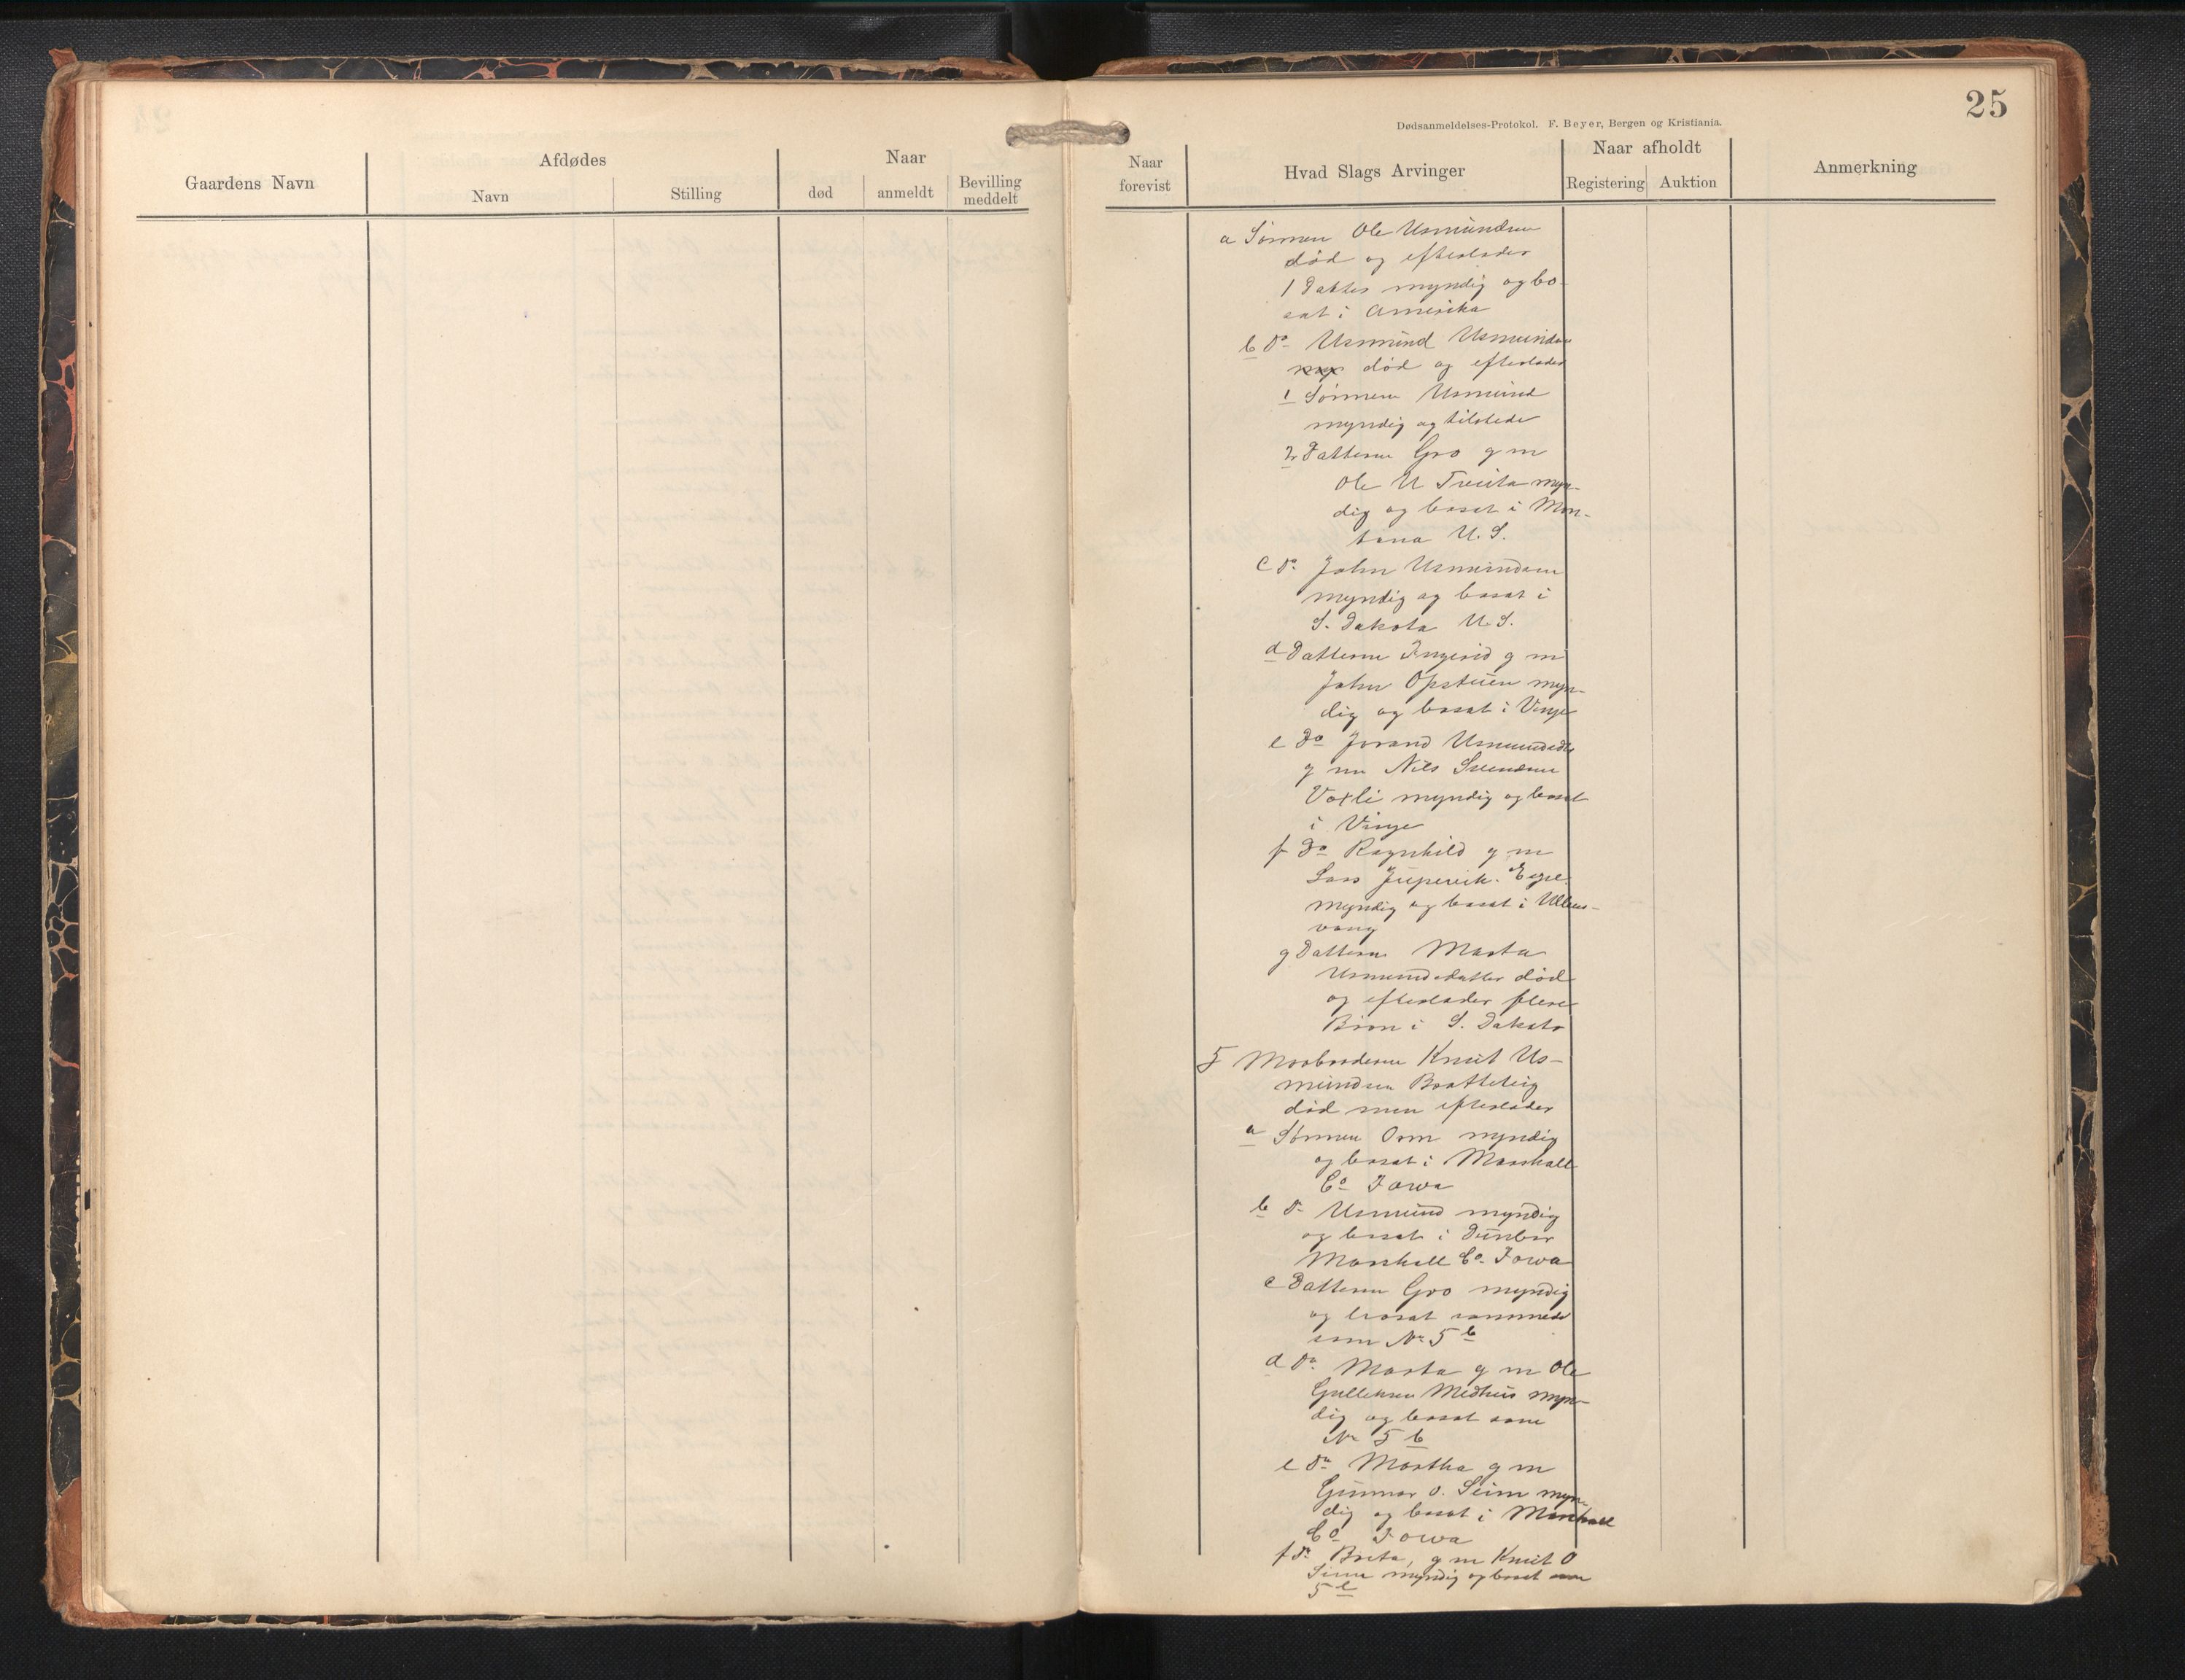 25
Dødsanmeldelses-Protokol. F. Beyer, Bergen og Kristiania.
Gaardens Navn
Afdødes
Navn
Stilling
Naar
død
anmeldt
Bevilling
meddelt
Naar
forevist
Hvad Slags Arvinger
Naar afholdt
Registering
Auktion
Anmerkning
a Sønnen Ole Usmundsen
død og efterlader
1 Datter myndig og bo-
sat i Amerika
b do Usmund Usmundsen
død og efterlader
1 Sønnen Usmund
myndig og tilstede
2 Datteren Gro g m
Ole U myn-
dig og bosat i Mon-
tana U. S.
c do John Usmundsen
myndig og bosat i
S. Dakota U. S.
d Datteren Ingerid g m
John Opstuen myn-
dig og bosat i Vinje
e Do Jorand Usmundsdtr
g m Nils Svendsen
Voxli myndig og bosat
i Vinje
f Do Ragnhild g m
Lars
myndig og bosat i Ullens-
vang
g Datteren Marta
Usmundsdatter død
og efterlader flere
Børn i S. Dakota
5 Morbroderen Knut Us-
mundsen Bratteleig
død men efterlader
a Sønnen Orm myndig
og bosat i Marshall
Co Iowa
b do Usmund myndig
og bosat i Dunbar
Marshall Co. Iowa
c Datteren Gro myndig
og bosat sammested
som No 5 b
d do Marta g m Ole
Gulleksen Medhus myn-
dig og bosat som
No 5 b
e do Martha g m
Gunnar O. Seim myn-
dig og bosat i Marshall
Co Iowa
f do Brita, g m Knut O
Seim myndig og bosat som
5 e